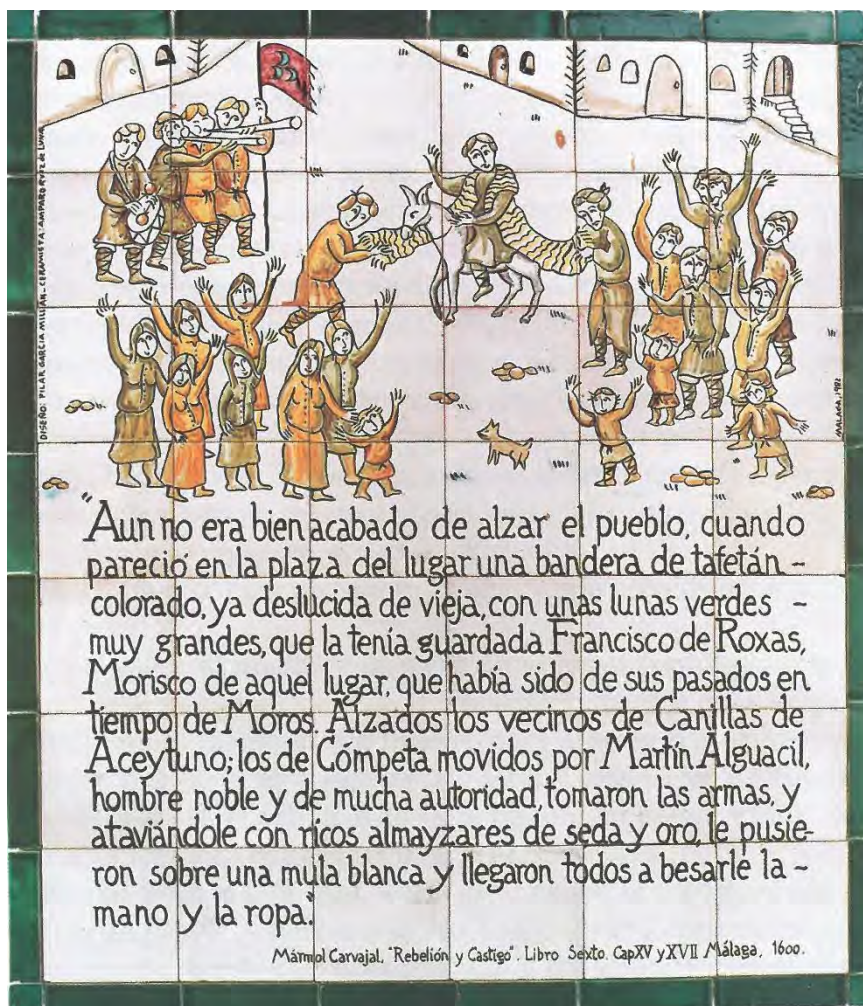 DISEÑO: PILAR GARCIA MILLÁN. CERAMISTA: AMPARO RUIZ de LUNA
MALAGA, 1982
"Aun no era bien acabado de alzar el pueblo, cuando
pareció en la plaza del lugar una bandera de tafetán -
colorado, ya deslucida de vieja, con unas lunas verdes -
muy grandes, que la tenía guardada Francisco de Roxas,
Morisco de aquel lugar, que había sido de sus pasados en
tiempo de Moros. Alzados los vecinos de Canillas de
Aceytuno; los de Cómpeta movidos por Martín Alguacil,
hombre noble y de mucha autoridad, tomaron las armas, y
ataviándole con ricos almayzares de seda y oro, le pusie-
ron sobre una mula blanca y llegaron todos a besarle la -
mano y la ropa."
Mármol Carvajal, "Rebelión y Castigo". Libro Sexto. Cap XV y XVII Málaga, 1600.